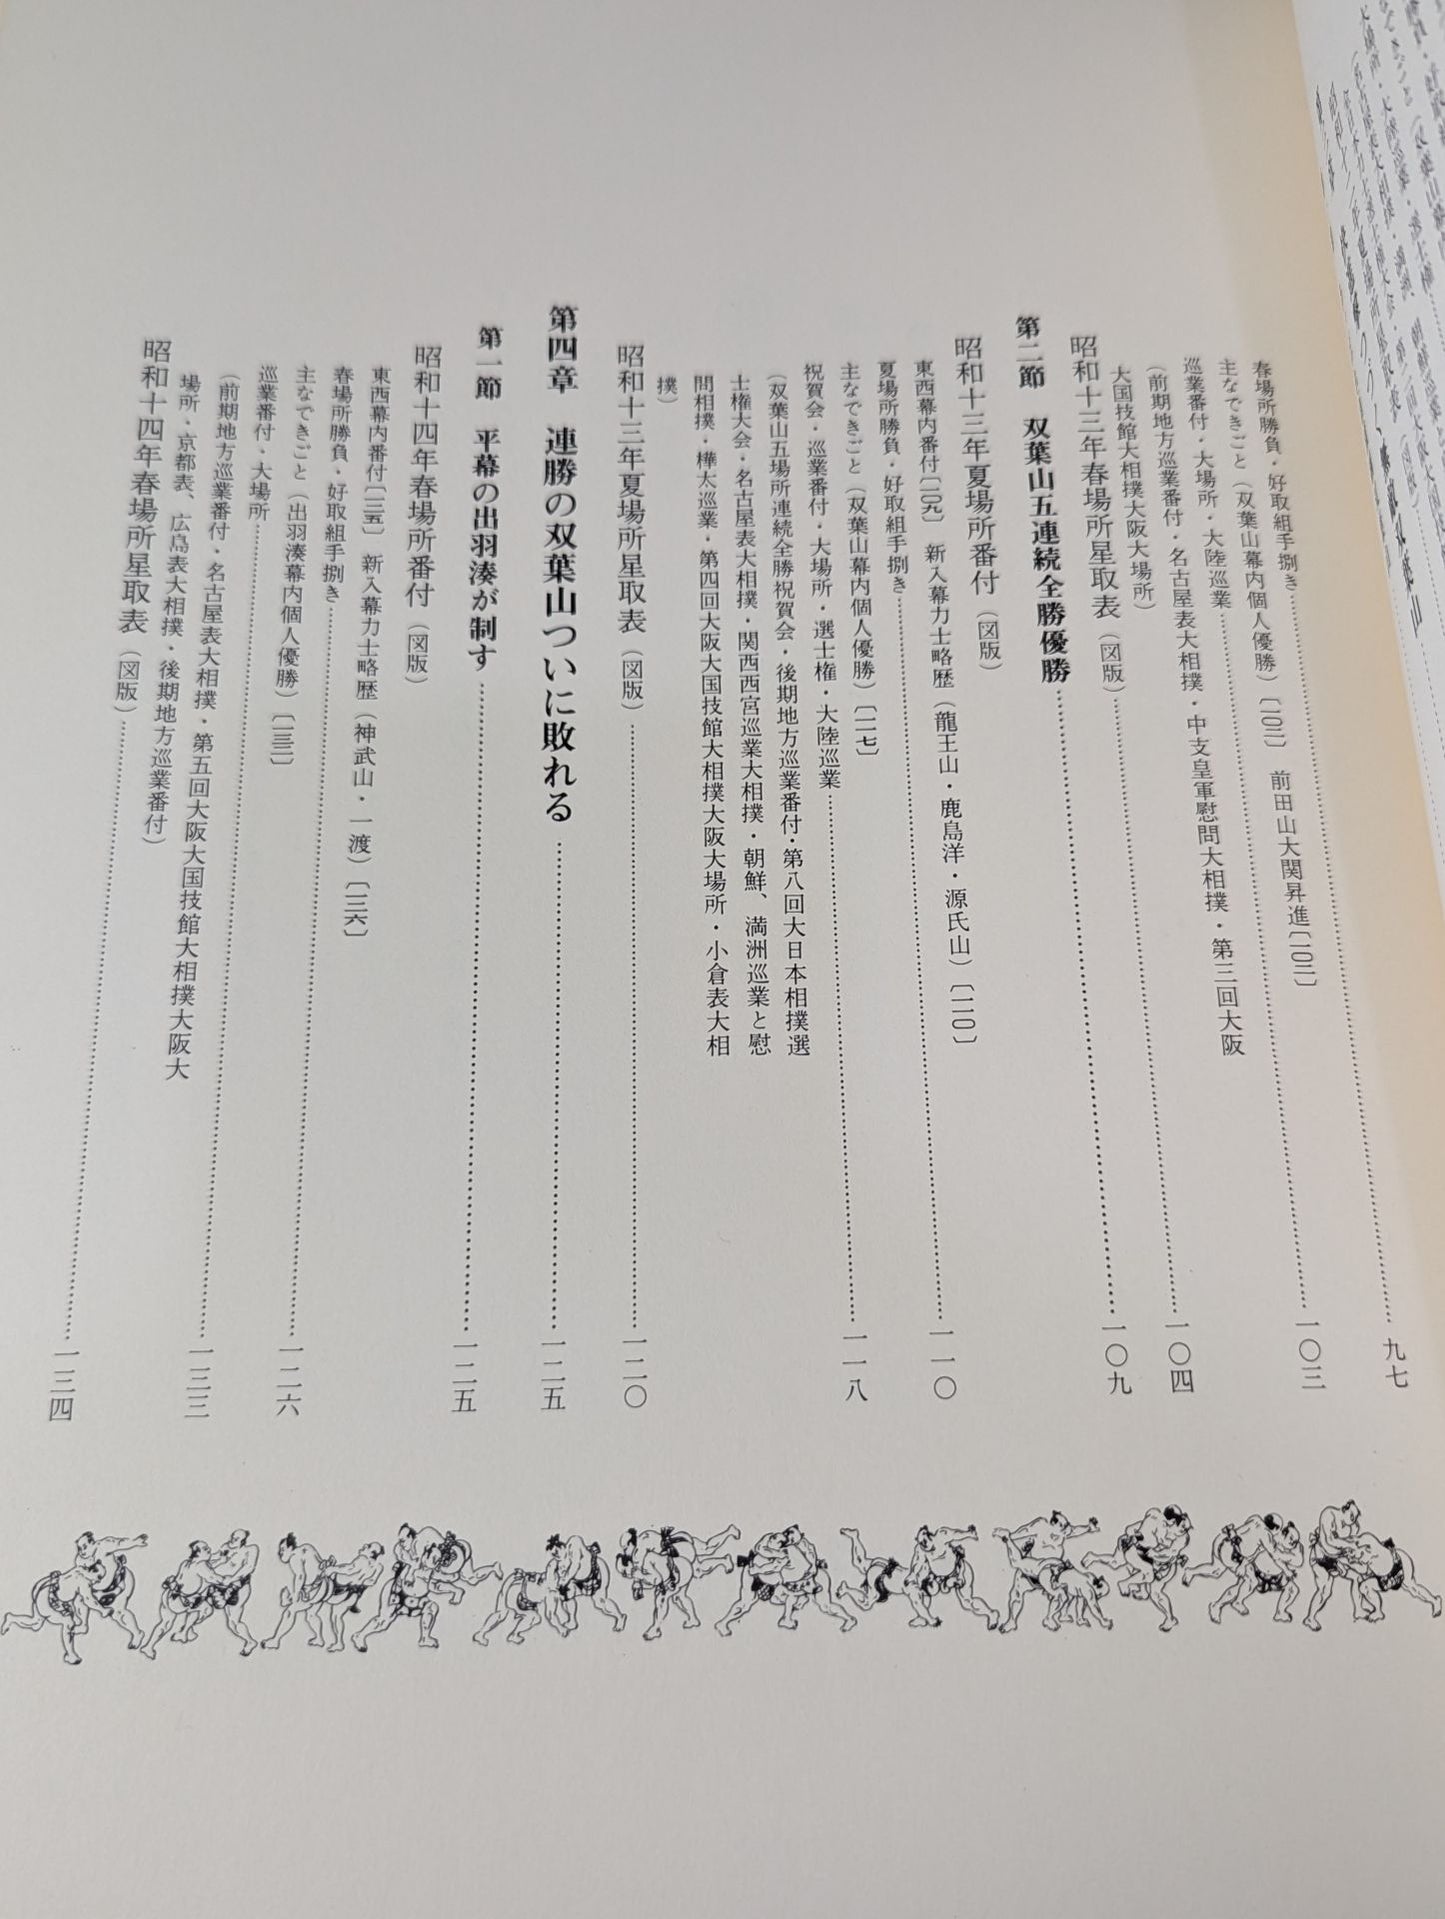 春場所勝負・好取組手捌き……九七
主なできごと（双葉山幕内個人優勝）〔一〇二〕　前田山大関昇進〔一〇三〕
巡業番付・大場所・大陸巡業……一〇三
（前期地方巡業番付・名古屋表大相撲・中支皇軍慰問大相撲・第三回大阪
大国技館大相撲大阪大場所）……一〇四
昭和十三年春場所星取表（図版）……一〇九
第二節　双葉山五連続全勝優勝
昭和十三年夏場所番付（図版）……一一〇
東西幕内番付〔一〇九〕　新入幕力士略歴（龍王山・鹿島洋・源氏山）〔一一〇〕
夏場所勝負・好取組手捌き……一一〇
主なできごと（双葉山幕内個人優勝）〔一一七〕
祝賀会・巡業番付・大場所・選士権・大陸巡業……一一八
（双葉山五場所連続全勝祝賀会・後期地方巡業番付・第八回大日本相撲選
士権大会・名古屋表大相撲・関西西宮巡業大相撲・朝鮮、満洲巡業と慰
問相撲・樺太巡業・第四回大阪大国技館大相撲大阪大場所・小倉表大相
撲）
昭和十三年夏場所星取表（図版）……一二〇
第四章　連勝の双葉山ついに敗れる……一二五
第一節　平幕の出羽湊が制す……一二五
昭和十四年春場所番付（図版）
東西幕内番付〔一二五〕　新入幕力士略歴（神武山・一渡）〔一二六〕
春場所勝負・好取組手捌き……一二六
主なできごと（出羽湊幕内個人優勝）〔一三二〕
巡業番付・大場所……一三三
（前期地方巡業番付・名古屋表大相撲・第五回大阪大国技館大相撲大阪大
場所・京都表、広島表大相撲・後期地方巡業番付）
昭和十四年春場所星取表（図版）……一三四